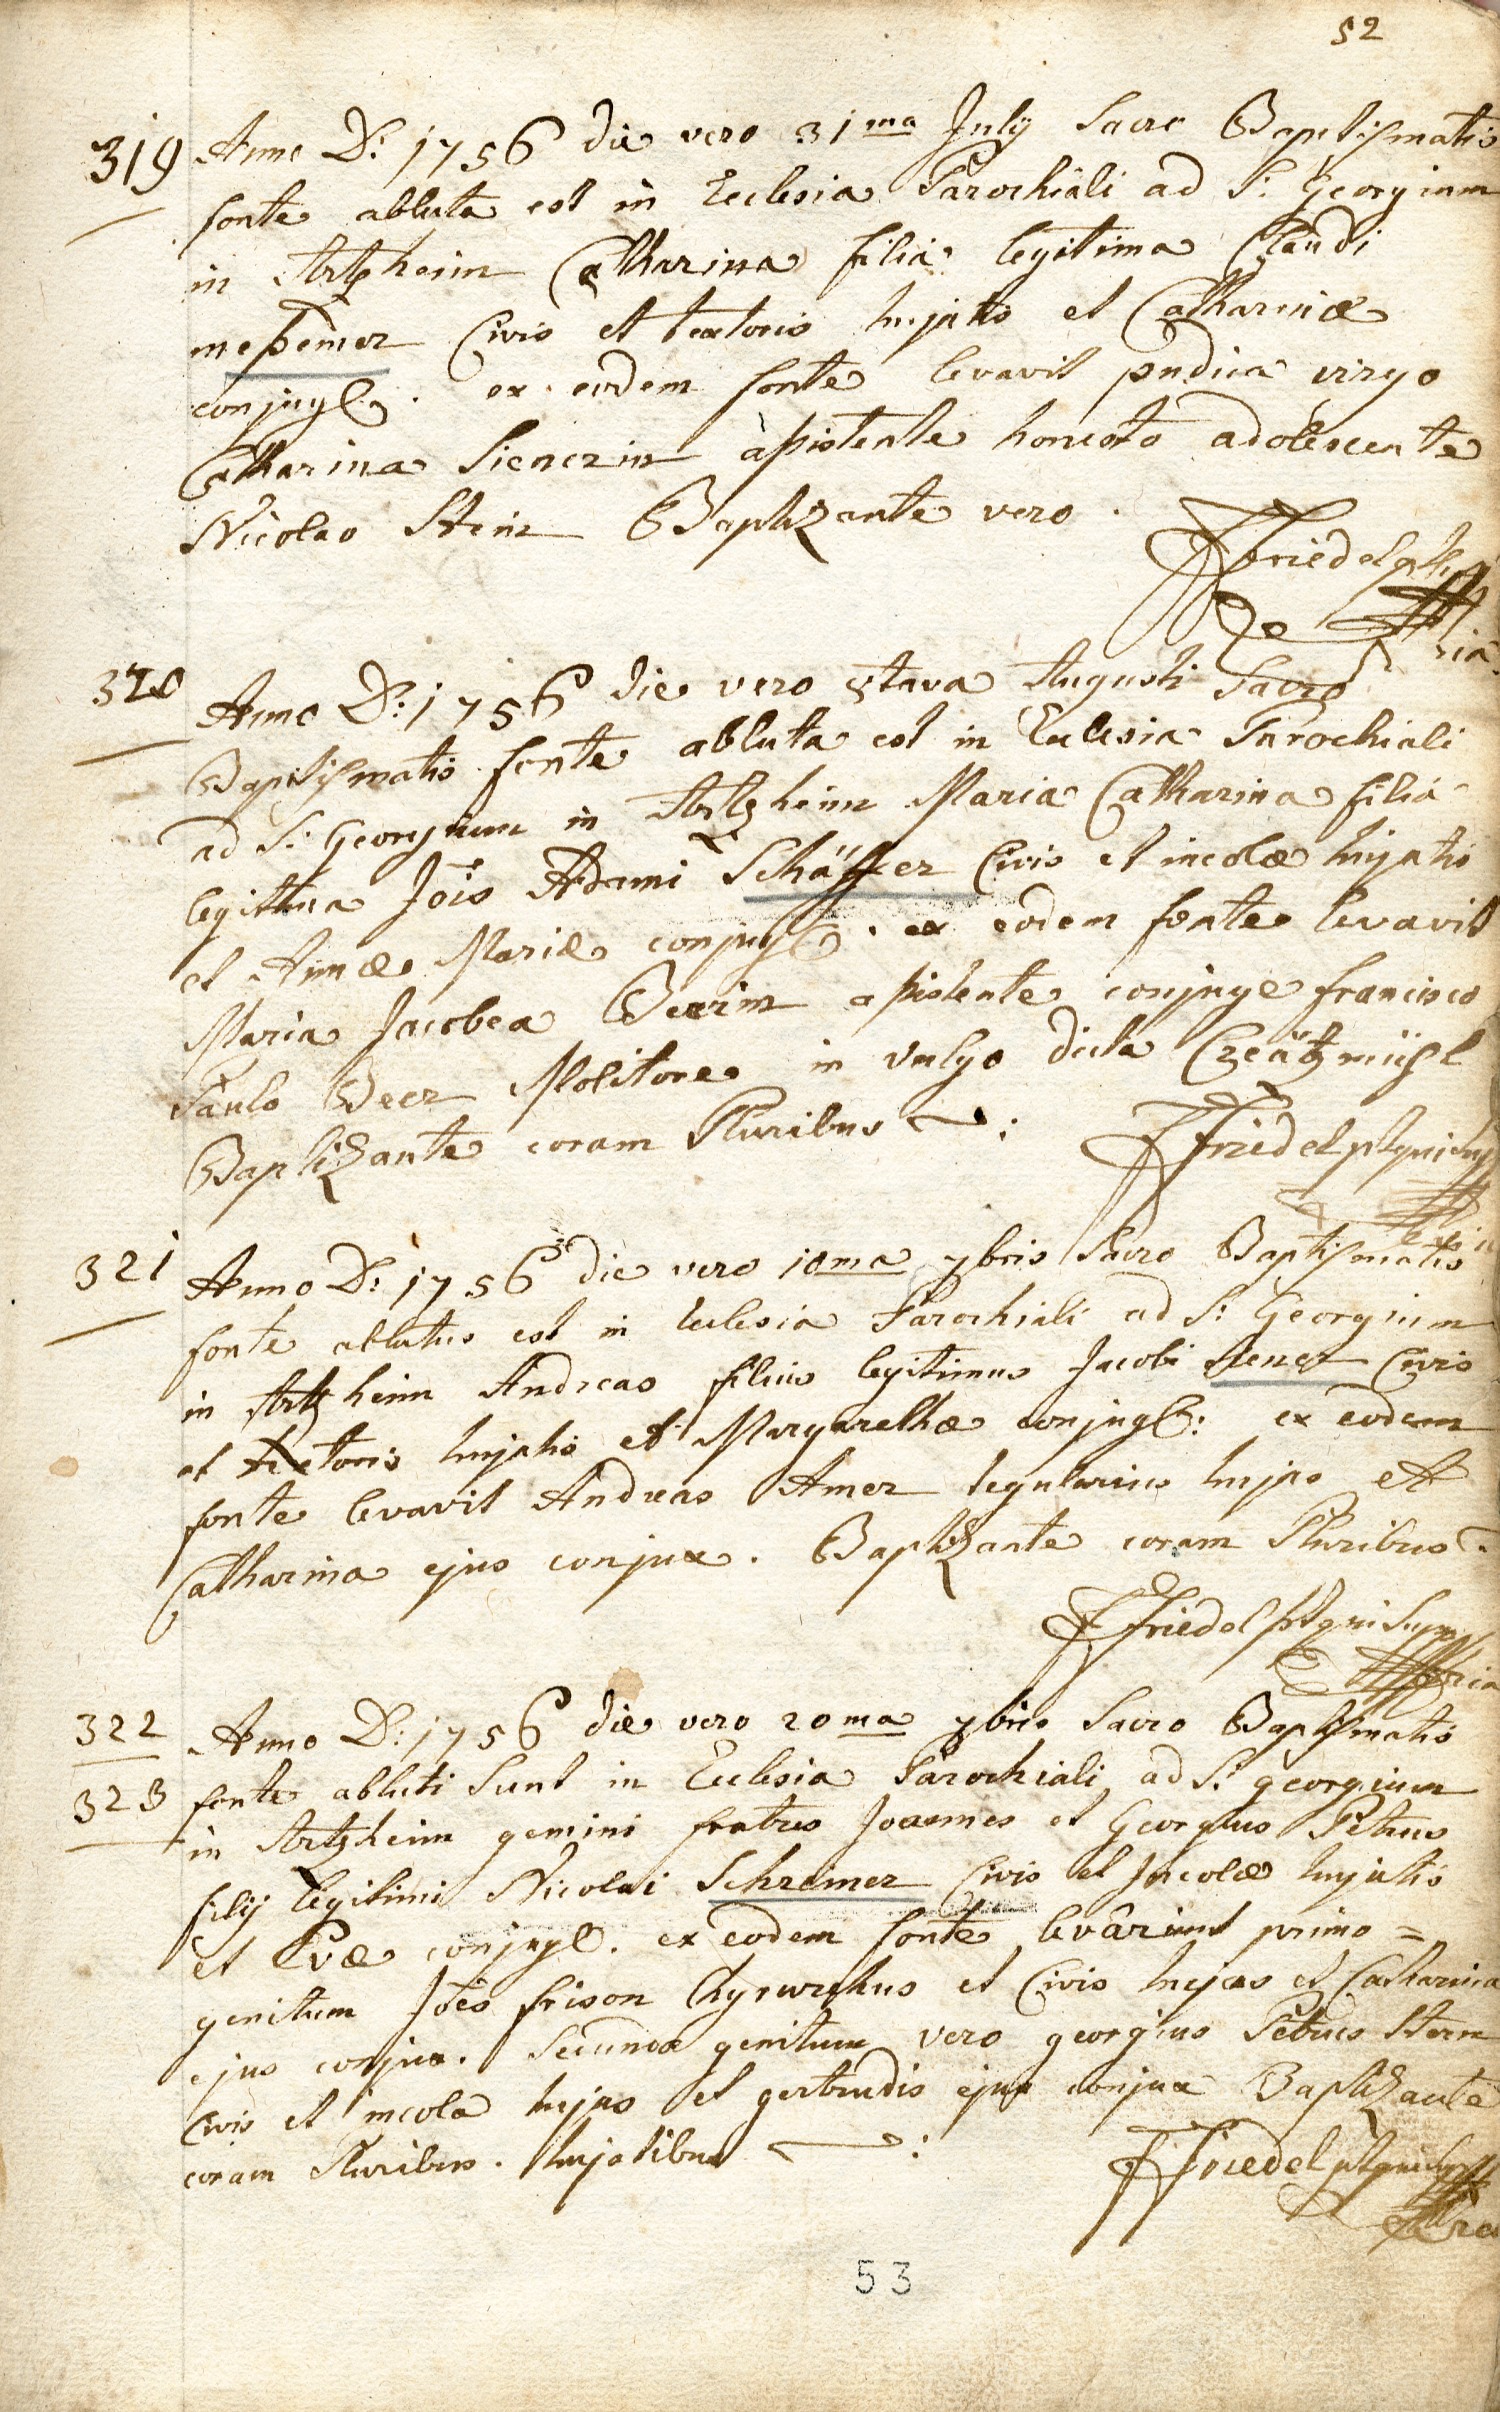 52
319 Anno D: 1756 die vero 31ma July Sacro Baptismatis
fonte abluta est in Ecclesia Parochiali ad S: Georgium
in Artzheim Catharina filia legitima Claudi
meßemer Civis et textoris hujatis et Catharinæ
conjug. ex eodem fonte levavit pudica virgo
Catharina Sienerin aßistente honesto adolescente
Nicolao Stein Baptizante vero.
Friedel
320 Anno D: 1756 die vero 8tava Augusti Sacro
Baptismatis fonte abluta est in Ecclesia Parochiali
ad S: Georgium in Artzheim Maria Catharina filia
legittima Jois Adami Schäffer Civis et incolæ hujatis
et Annæ Mariæ conjug. ex eodem fonte levavit
Maria Jacobea aßistente conjuge francisco
Paulo Beer Molitore in vulgo dicta
Baptizante coram Pluribus :
Friedel
321 Anno D: 1756 die vero 10ma 7bris Sacro Baptismatis
fonte ablutus est in Ecclesia Parochiali ad S: Georgium
in Artzheim Andreas filius legitimus Jacobi Siener Civis
et textoris hujatis et Margarethæ conjug: ex eodem
fonte levavit Andreas Amer tegularius hujas et
Catharina ejus conjux. Baptizante coram Pluribus.
Friedel
322 Anno D: 1756 die vero 20ma 7bris Sacro Baptismatis
323 fonte abluti Sunt in Ecclesia Parochiali ad S: georgium
in Artzheim gemini fratres Joannes et Georgius Petrus
filij legitimi Nicolai Schreiner Civis et Incolæ hujatis
et Evæ conjug. ex eodem fonte levârunt primo =
genitum Jões frison Chyrurchus et Civis hujas et Catharina
ejus conjux. Secundo genitum vero georgius Petrus Stern
Civis et incola hujas et gertrudis ejus conjux Baptizante
coram Pluribus. hujatibus :
Friedel
53